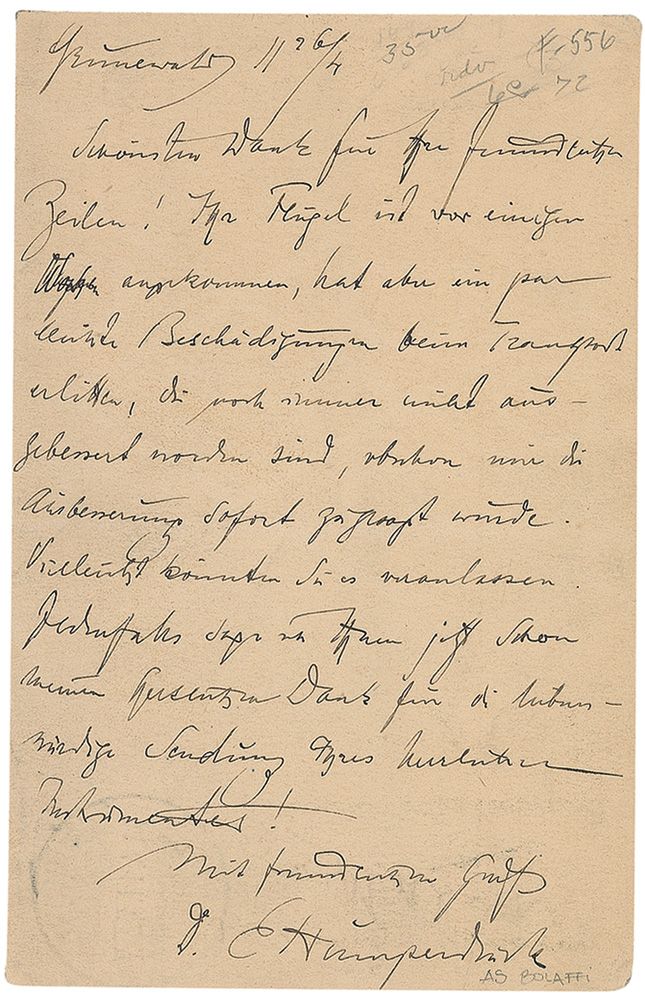 Grunewald 11 26/4
35
556
72
Schönsten Dank für Ihre freundlichen
Zeilen! Ihr Flügel ist vor einigen
Wochen angekommen, hat aber ein paar
leichte Beschädigungen beim Transport
erlitten, die noch immer nicht aus-
gebessert worden sind, obschon mir die
Ausbesserung sofort zugesagt wurde.
Vielleicht könnten Sie es veranlassen.
Jedenfalls sage ich Ihnen jetzt schon
meinen herzlichen Dank für die liebens-
würdige Sendung Ihres herrlichen
Instrumentes!
Mit freundlichem Gruß
Dr. E Humperdinck
AS BOLAFFI